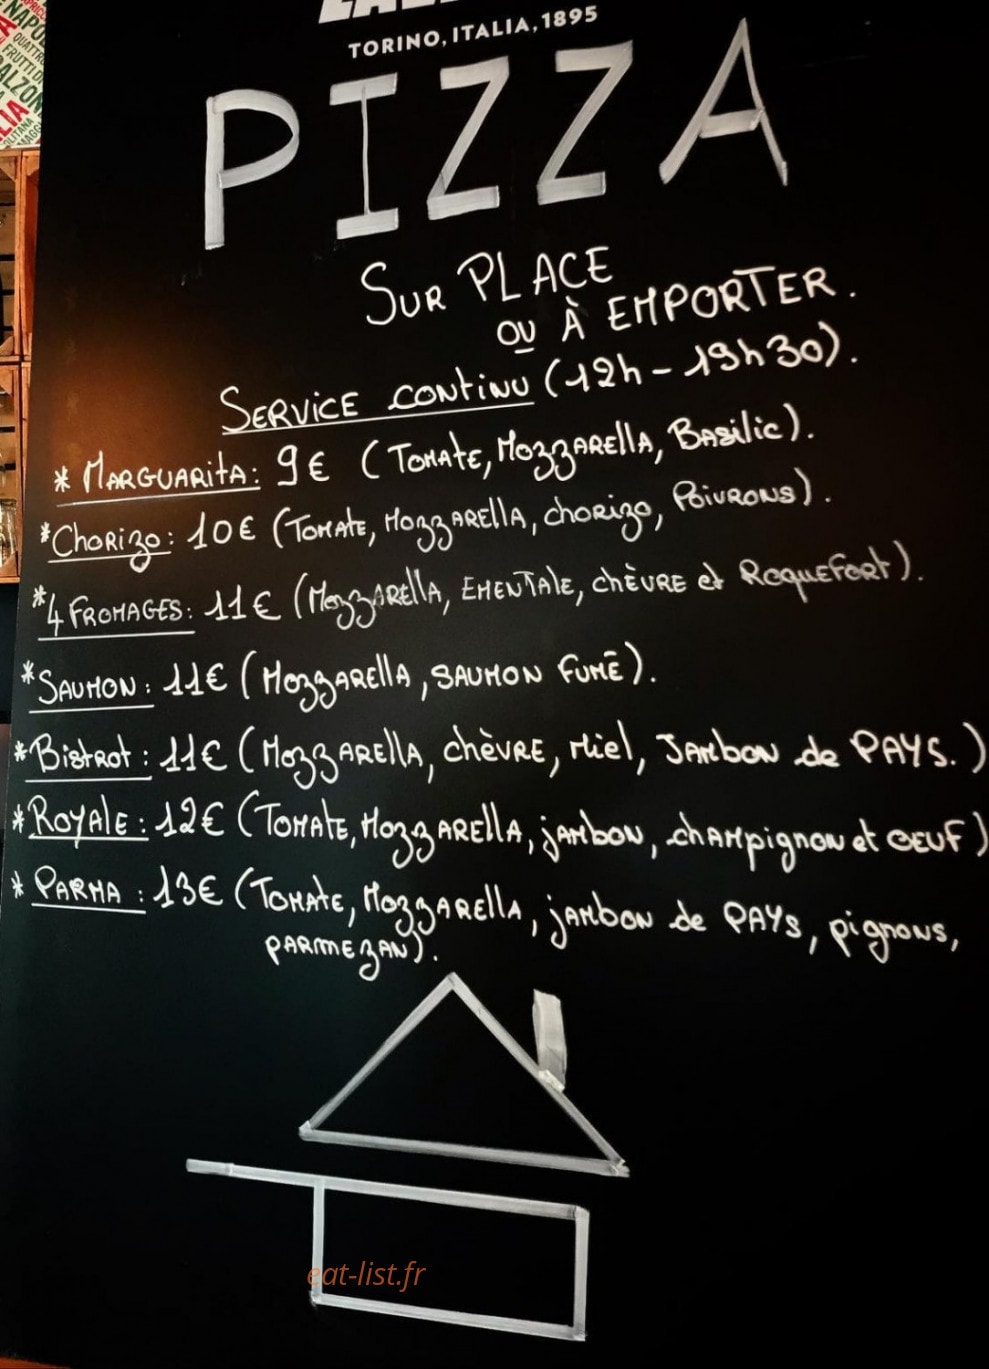 TORINO, ITALIA, 1895
PIZZA
SUR PLACE
OU À EMPORTER.
SERVICE CONTINU (12h - 19h30).
* MARGUARITA: 9€ (TOMATE, MOZZARELLA, BASILIC).
* CHORIZO: 10€ (TOMATE, MOZZARELLA, CHORIZO, POIVRONS).
* 4 FROMAGES: 11€ (MOZZARELLA, EMENTALE, CHÈVRE et ROQUEFORT).
* SAUMON: 11€ (MOZZARELLA, SAUMON FUMÉ).
* BISTROT: 11€ (MOZZARELLA, CHÈVRE, MIEL, JAMBON de PAYS.)
* ROYALE: 12€ (TOMATE, MOZZARELLA, jambon, champignon et OEUF)
* PARMA: 13€ (TOMATE, MOZZARELLA, jambon de PAYS, pignons,
PARMEZAN).
eat-list.fr
NAPOL
QUATTR
FRUTTI DI
ALZON